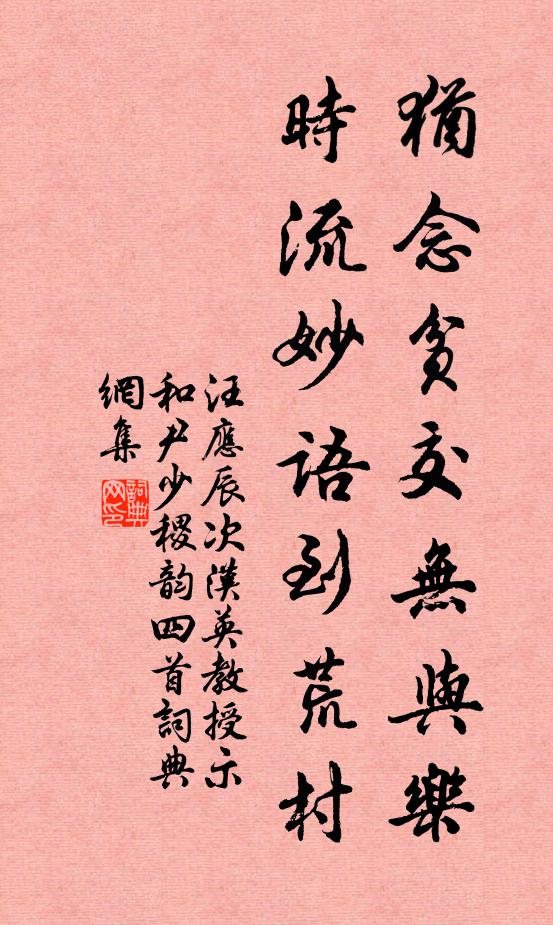 猶念貧交無與樂
時流妙語到荒村
汪應辰次漢英教授示
和尹少稷韵四首詞典
網集
詞典
网印